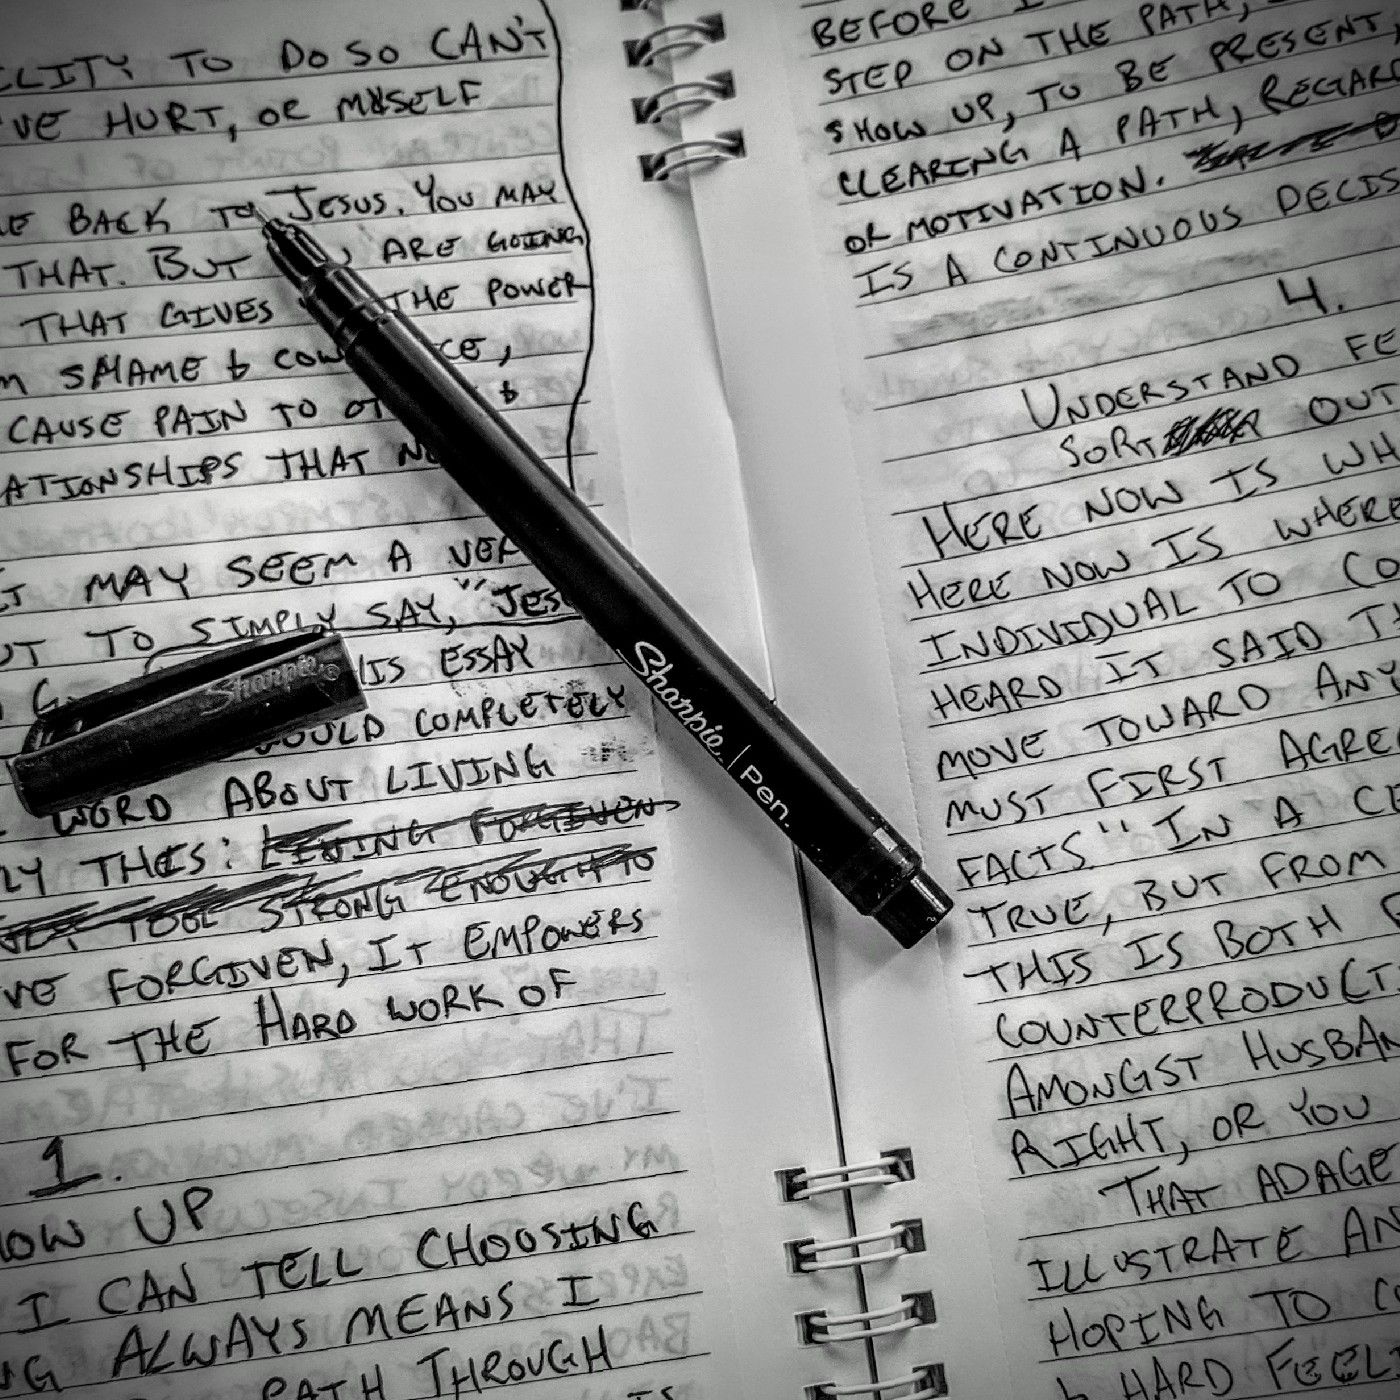 ILITY TO DO SO CAN'T
'VE HURT, OR MYSELF
BACK TO JESUS. YOU MAY
THAT. BUT ARE GOING
THAT GIVES THE POWER
SHAME & COW CE,
CAUSE PAIN TO OT &
ATIONSHIPS THAT NO
MAY SEEM A VER
UT TO SIMPLY SAY, "JES
IS ESSAY
OULD COMPLETELY
WORD ABOUT LIVING
LY THIS: LIVING FORGIVEN
TOOL STRONG ENOUGH TO
VE FORGIVEN, IT EMPOWERS
FOR THE HARD WORK OF
1.
HOW UP
I CAN TELL CHOOSING
NG ALWAYS MEANS I
PATH THROUGH
IS
Sharpie
Sharpie. | Pen.
BEFORE I
STEP ON THE PATH,
SHOW UP, TO BE PRESENT,
CLEARING A PATH, REGARD
OR MOTIVATION.
IS A CONTINUOUS DECIS
4.
UNDERSTAND FE
SORT OUT
HERE NOW IS WH
HERE NOW IS WHERE
INDIVIDUAL TO CO
HEARD IT SAID TH
MOVE TOWARD ANY
MUST FIRST AGREE
FACTS" IN A CE
TRUE, BUT FROM
THIS IS BOTH
COUNTERPRODUCTI
AMONGST HUSBAN
RIGHT, OR YOU
THAT ADAGE
ILLUSTRATE AN
HOPING TO C
& HARD FEEL